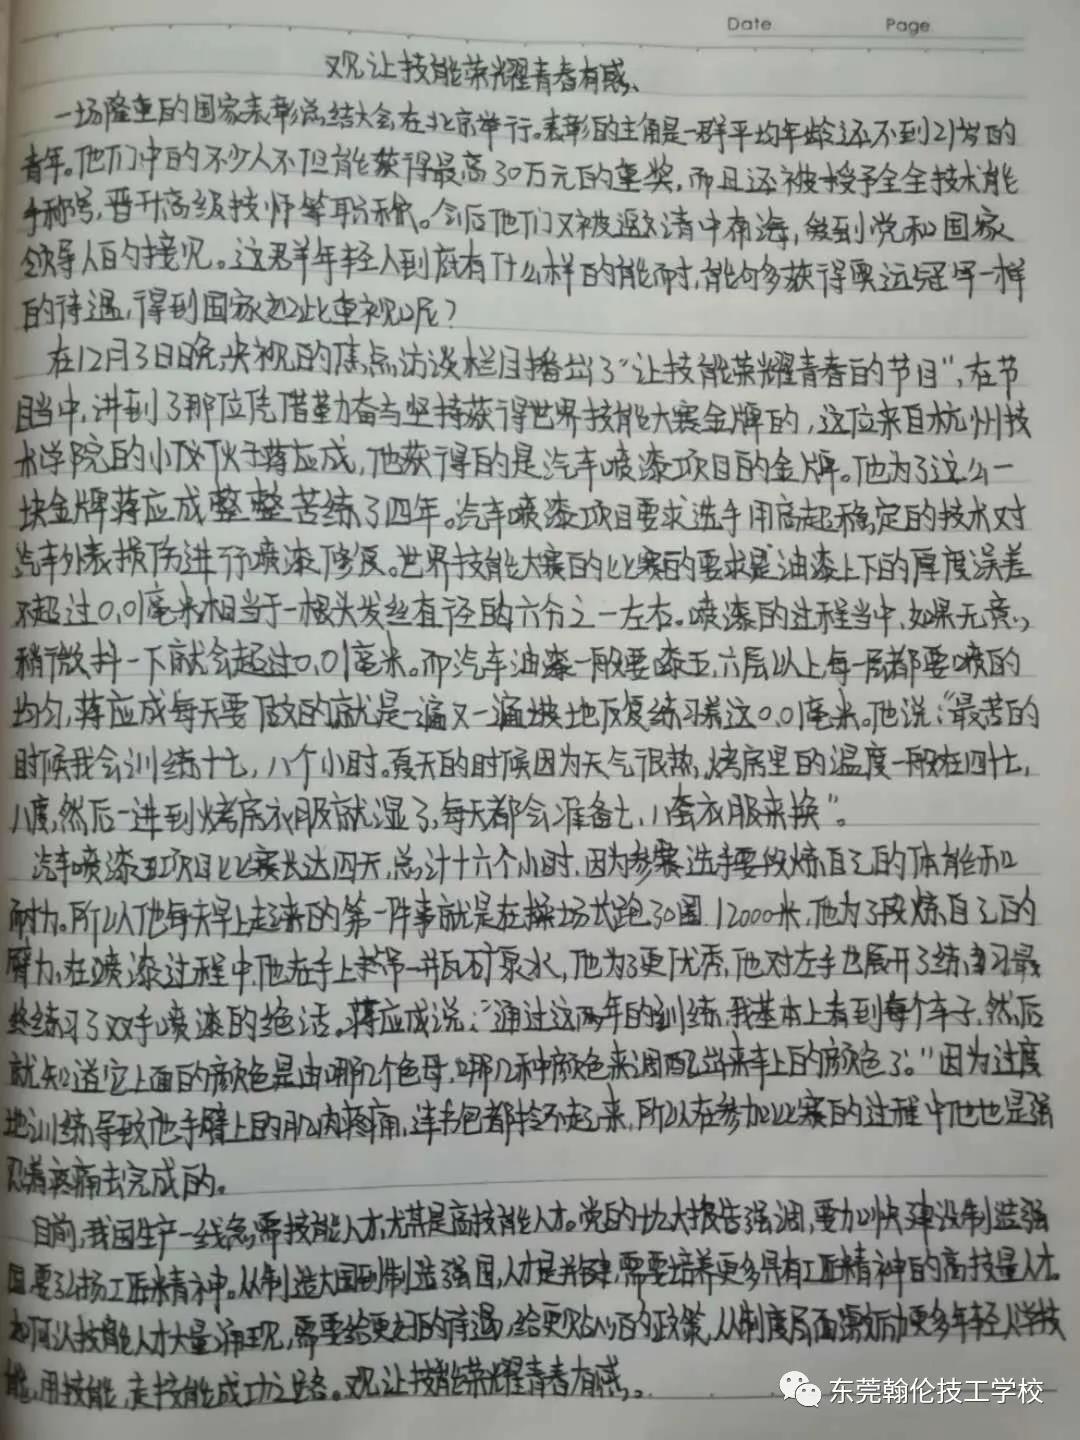 Date Page
观让技能荣耀青春有感、
一场隆重的国家表彰总结大会在北京举行。表彰的主角是一群平均年龄还不到21岁的
青年。他们中的不少人不但能获得最高30万元的重奖,而且还被授予全全技术能
手称号,晋升高级技师等职称。今后他们又被邀请中南海,受到党和国家
领导人的接见。这君羊年轻人到底有什么样的能耐,能够多获得奥运冠军一样
的待遇,得到国家如此重视呢?
在12月3日晚,央视的焦点访谈栏目播出了“让技能荣耀青春的节目”,在节
目当中,讲到了那位凭借勤奋与坚持获得世界技能大赛金牌的,这位来自杭州技
术学院的小伙伙子蒋应成,他获得的是汽车喷漆项目的金牌。他为了这么一
块金牌蒋应成整整苦练了四年。汽车喷漆项目要求选手用高超稳定的技术对
汽车外表损伤进行喷漆修复。世界技能大赛的比赛的要求是油漆上下的厚度误差
不超过0.01毫米,相当于一根头发丝直径的六分之一左右。喷漆的过程当中,如果无意,
稍微抖一下就会超过0.01毫米。而汽车油漆一般要漆五,六层以上,每一层都要喷的
均匀,蒋应成每天要做的就是一遍又一遍地反复练习着这0.01毫米。他说:“最苦的
时候我会训练十七,八个小时。夏天的时候因为天气很热,烤房里的温度一般在四十七,
八度,然后一进到烤房衣服就湿了,每天都会准备七,八套衣服来换”。
汽车喷漆项目比赛长达四天,总计十六个小时,因为参赛选手要段炼自己的体能和
耐力。所以他每天早上起来的第一件事就是在操场长跑30圈12000米,他为了段炼自己的
臂力,在喷漆过程中,他在手上吊一瓶矿泉水,他为了更优秀,他对左手也展开了练习最
终练习了双手喷漆的绝活。蒋应成说:“通过这两年的训练,我基本上看到每个车子,然后
就知道它上面的颜色是由哪几个色母,哪几种颜色来调配出来车上的颜色了。”因为过度
地训练导致他手臂上的肌肉疼痛,连书包都拎不起来,所以在参加比赛的过程中他也是强
忍着疼痛去完成的。
目前,我国生产一线急需技能人才尤其是高技能人才。党的十九大报告强调,要加快建设制造强
国要弘扬工匠精神。从制造大国到制造强国,人才是关键,需要培养更多具有工匠精神的高技量人才。
如何让技能人才大量涌现,需要给更好的待遇,给更贴心的政策,从制度层面激励更多年轻人学技
能,用技能,走技能成功之路。观让技能荣耀青春有感。
东莞翰伦技工学校